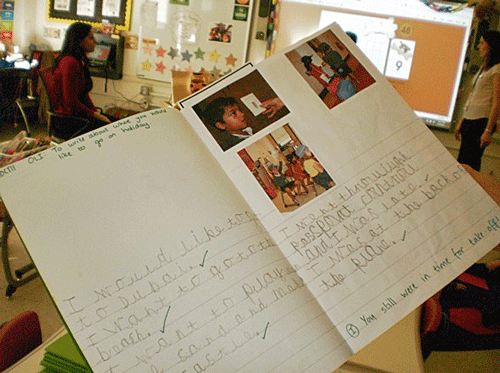 OLI To write about where you would
like to go on holiday.
I would like to go
to Dubai.
I want to go to the
beach.
I want to play
sand and make
castle.
I went through
passport control
and I was late.
I was at the back of
the plane.
① You still were in time for take off!
9